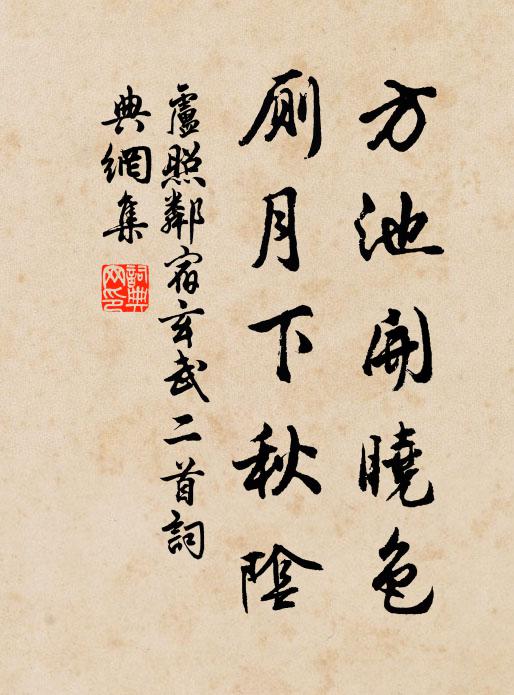 方池開曉色
厠月下秋陰
盧照鄰宿玄武二首詞
典網集
詞典
网印